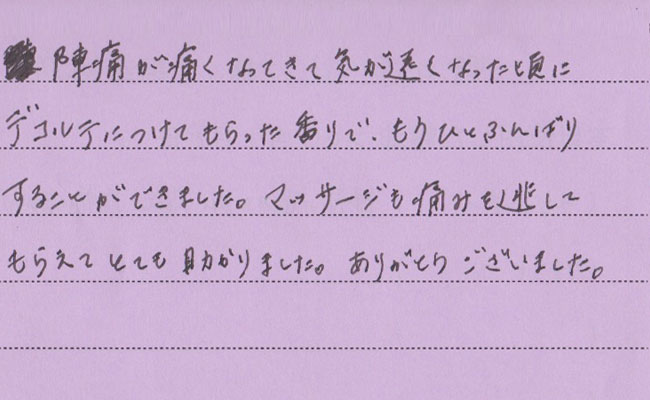 陣痛が痛くなってきて気が遠くなった頃に
デコルテにつけてもらった香りで、もうひとふんばり
することができました。マッサージも痛みを逃して
もらえてとても助かりました。ありがとうございました。